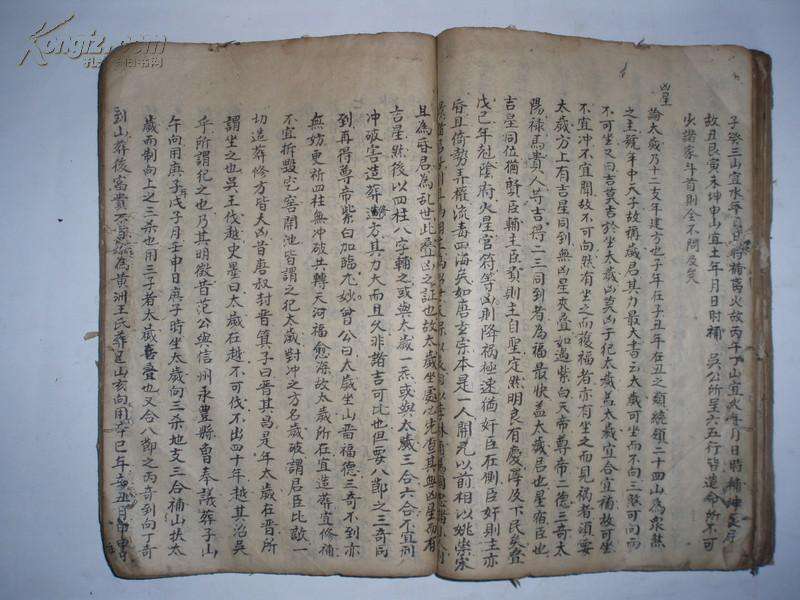 子癸三山宜水年月日時補
故丑艮寅未坤申山宜土年月日時補 吳公所呈六五行皆造命所不可
少諸家斗首則全不問及矣
凶星
論太歲乃十二支年建方也子年在子丑年在丑之類統領二十四山為衆煞
之主號年中天子故稱歲君其力最大書云太歲可坐而不向三煞可向而
不可坐又曰吉莫吉於坐太歲凶莫凶于犯太歲盖太歲宜合宜補故可坐
不宜冲不宜開故不可向然有坐之而獲福者亦有坐之而見禍者須要
太歲方上有吉星同到無凶星夾叠如遇紫白天帝尊帝二德三奇太
陽祿馬貴人等吉得二三同到者為福最快盖太歲君也星宿臣也
吉星同位猶賢臣輔主臣賢則主自聖定然明良有慶澤及下民矣叠
戊己年尅陰府火星官符等凶則降禍極速猶奸臣在側臣奸則主亦
昏且倚勢弄權流毒四海矣如唐玄宗本是一人開元以前相以姚崇宋
且為昏君為乱世此叠凶之証也故太歲坐處必先查其無凶星而有
吉星然後以四柱八字輔之或與太歲一炁或與太歲三合六合不宜刑
冲破害造葬方其力大而且久非諸吉可比也但要八節之三奇同
到再得尊帝紫白加臨尤妙曾公曰太歲坐山晋福德三奇不到亦
無妨更祈四柱無冲破共轉天河福愈深故太歲所在宜造葬宜修補
不宜拆毀穴窖開池皆謂之犯太歲對冲之方名歲破謂居臣比敵一
切造葬修方皆大凶昔唐叔封晋箕子曰晋其昌是年太歲在晋所
謂坐之也吳王伐越史墨曰太歲在越不可伐不出四十年越其治吳
乎所謂犯之也乃其明徵昔范公與信州永豐縣曾奉議葬子山
午向用庚子戊子月壬申日庚子時坐太歲向三煞地支三合補山扶太
歲而制向上之三杀也用三子者太歲叠也又合八節之丙奇到向丁奇
到山葬後富貴不為黄州王氏葬艮山